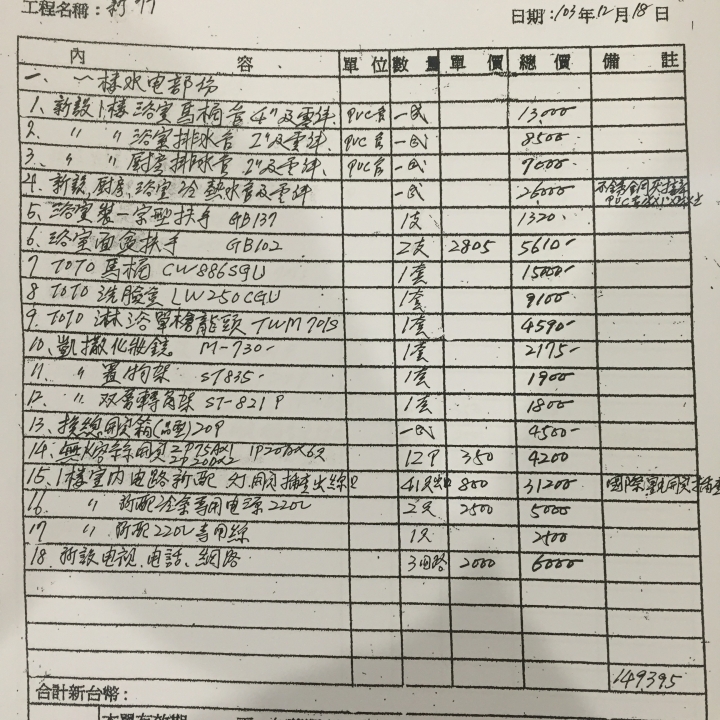 工程名稱：新竹
日期：103年12月18日
內 容 單位 數量 單價 總價 備註
一、一樓水电部份
1、新設1樓浴室馬桶管4"及零件 PVC管 一式 13000
2、 " " 浴室排水管 2"及零件 PVC管 一式 8500
3、 " " 廚房排水管 2"及零件 PVC管 一式 7000
4、新設廚房、浴室冷熱水管及零件 一式 26000
5、浴室裝一字型扶手 GB137 1支 1320
6、浴室面盆扶手 GB102 2支 2805 5610
7 TOTO馬桶 CW886SGU 1套 15000
8 TOTO洗臉盆 LW250CGU 1套 9100
9、TOTO淋浴單槍龍頭 TWM701S 1套 4590
10、凱撒化妝鏡 M-730 1套 2175
11、 " 置物架 ST835 1套 1900
12、 " 双層轉角架 ST-821P 1套 1800
13、換總開關箱 20P 一式 4500
14、無熔絲開關 2P75A×1 2P20A×2 1P20A×6只 12P 350 4200
15、1樓室內电路新配 灯、開關插座出線口 800 31200
16 " 新配冷氣專用电源220V 2只 2500 5000
17 " 新配220V專用線 1只 2500
18、新設电視、电話、網路 3回路 2000 6000
149395
合計新台幣：